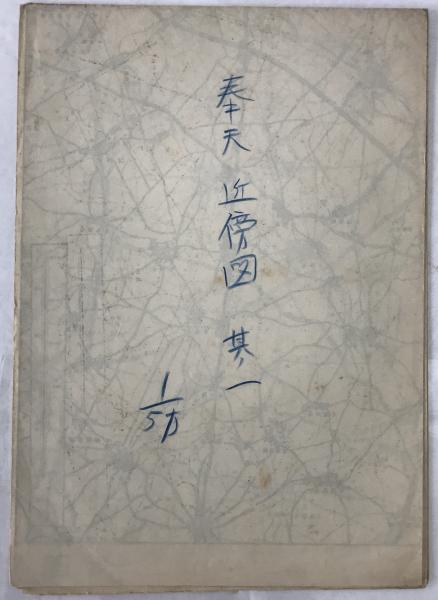 奉天近傍図 其一
1/5万